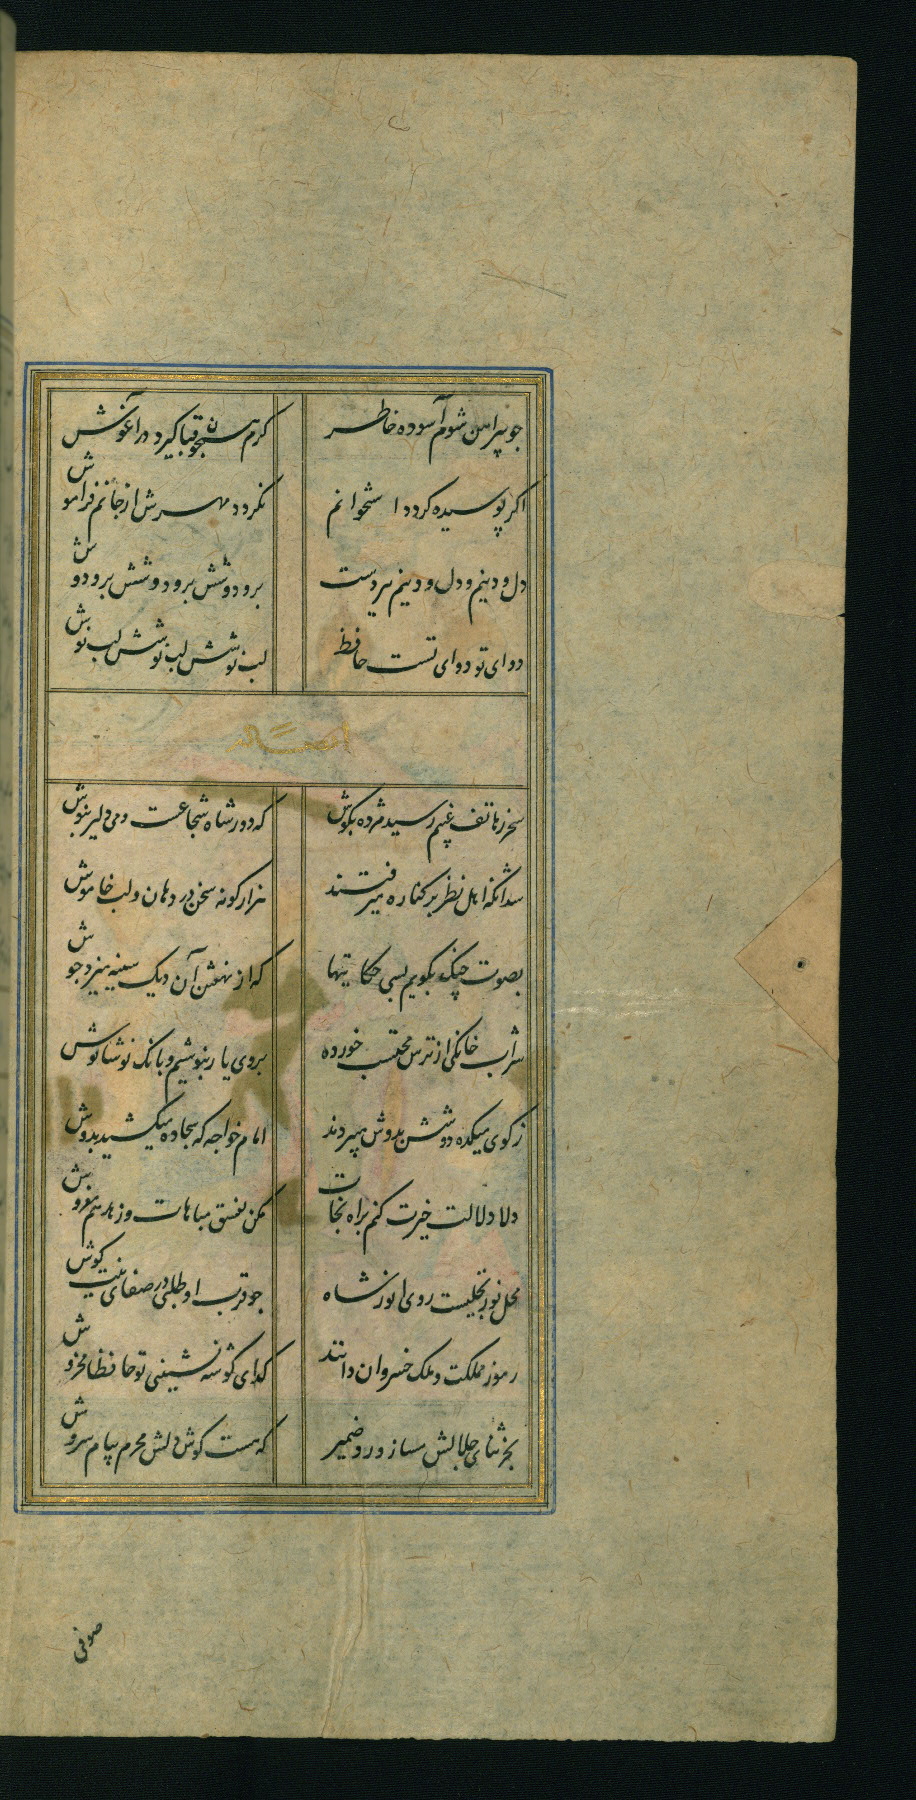 چو پیراهن شوم آسوده خاطر گرم همچون قبا گیرد در آغوش
اگر پوسیده گردد استخوانم نگردد مهرش از جانم فراموش
دل و دینم دل و دینم ببردست بر و دوشش بر و دوشش بر و دوش
دوای تو دوای تست حافظ لب نوشش لب نوشش لب نوش
سحر ز هاتف غیبم رسید مژده بگوش که دور شاه شجاعست و می دلیر بنوش
شد آنکه اهل نظر بر کناره میرفتند هزار گونه سخن در دهان و لب خاموش
بصوت چنگ بگویم بسی حکایتها که از نهفتن آن دیگ سینه میزد جوش
شراب خانگی از ترس محتسب خورده بروی یار بنوشیم و بانگ نوشانوش
ز کوی میکده دوشش بدوش میبردند امام خواجه که سجاده میکشید بدوش
دلا دلالت خیرت کنم براه نجات مکن بفسق مباهات و زهد هم مفروش
محل نور تجلیست روی انور شاه چو قرب او طلبی در صفای نیت کوش
رموز مملکت و ملک خسروان دانند گدای گوشه نشینی تو حافظا مخروش
بجز ثنای جلالش مساز ورد ضمیر که هست گوش دلش محرم پیام سروش
صوفی